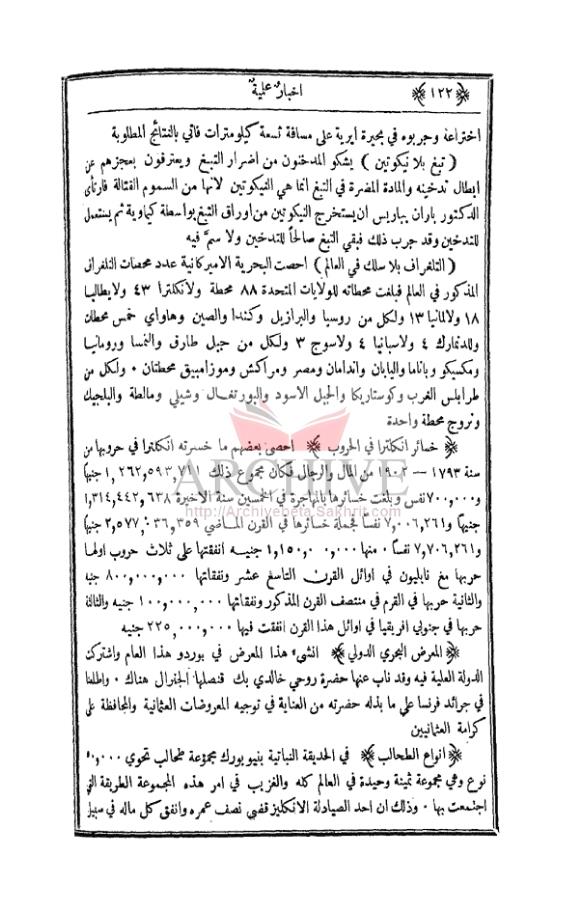 ﴿ ١٢٢ ﴾ اخبار علمية
اختراعه وجربوه في بحيرة ايرية على مسافة تسعة كيلومترات فاتي بالنتائج المطلوبة
( تبغ بلا نيكوتين ) يشكو المدخنون من اضرار التبغ ويعترفون بعجزهم عن
ابطال تدخينه والمادة المضرة في التبغ انما هي النيكوتين لانها من السموم القتالة فارتأى
الدكتور باران بباريس ان يستخرج النيكوتين من اوراق التبغ بواسطة كيماوية ثم يستعمل
للتدخين وقد جرب ذلك فبقي التبغ صالحاً للتدخين ولا سمَّ فيه
( التلغراف بلا سلك في العالم ) احصت البحرية الاميركانية عدد محطات التلغراف
المذكور في العالم فبلغت محطاته للولايات المتحدة ٨٨ محطة ولانكلترا ٤٣ ولايطاليا
١٨ ولالمانيا ١٣ ولكل من روسيا والبرازيل وكندا والصين وهاواي خمس محطات
وللدنمارك ٤ ولاسبانيا ٤ ولاسوج ٣ ولكل من جبل طارف والنمسا ورومانيا
ومكسيكو وباناما واليابان واندامان ومصر ومراكش وموزامبيق محطتان ٠ ولكل من
طرابلس الغرب وكوستاريكا والجبل الاسود والبورتغال وشيلي ومالطة والبلجيك
ونروج محطة واحدة
﴿ خسائر انكلترا في الحروب ﴾ احصى بعضهم ما خسرته انكلترا في حروبها من
سنة ١٧٩٣ — ١٩٠٢ من المال والرجال فكان مجموع ذلك ١,٢٦٢,٥٩٣,٧١١ جنيهاً
و٧٠٠,٠٠٠ نفس وبلغت خسائرها بالمهاجرة في الخمسين سنة الاخيرة ١,٣١٤,٤٤٢,٦٣٨
جنيهاً و٧,٠٠٦,٢٦١ نفساً فجملة خسائرها في القرن الماضي ٢,٥٧٧,٠٣٦,٣٥٩ جنيهاً
و٧,٧٠٦,٢٦١ نفساً ٠ منها ١,١٥٠,٠٠٠,٠٠٠ جنيه انفقتها على ثلاث حروب اولها
حربها مع نابليون في اوائل القرن التاسع عشر ونفقاتها ٨٠٠,٠٠٠,٠٠٠ جنيه
والثانية حربها في القرم في منتصف القرن المذكور ونفقاتها ١٠٠,٠٠٠,٠٠٠ جنيه والثالثة
حربها في جنوبي افريقيا في اوائل هذا القرن انفقت فيها ٢٢٥,٠٠٠,٠٠٠ جنيه
﴿ المعرض البحري الدولي ﴾ انشىء هذا المعرض في بوردو هذا العام واشتركت
الدولة العلية فيه وقد ناب عنها حضرة روحي خالدي بك قنصلها الجنرال هناك ٠ واطلعنا
في جرائد فرنسا على ما بذله حضرته من العناية في توجيه المعروضات العثمانية والمحافظة على
كرامة العثمانيين
﴿ انواع الطحالب ﴾ في الحديقة النباتية بنيويورك مجموعة طحالب تحوي
نوع وهي مجموعة ثمينة وحيدة في العالم كله والغريب في امر هذه المجموعة الطريقة التي
اجتمعت بها ٠ وذلك ان احد الصيادلة الانكليز قضى نصف عمره وانفق كل ماله في سبيل
ARCHIVE
http://Archivebeta.Sakhrit.com